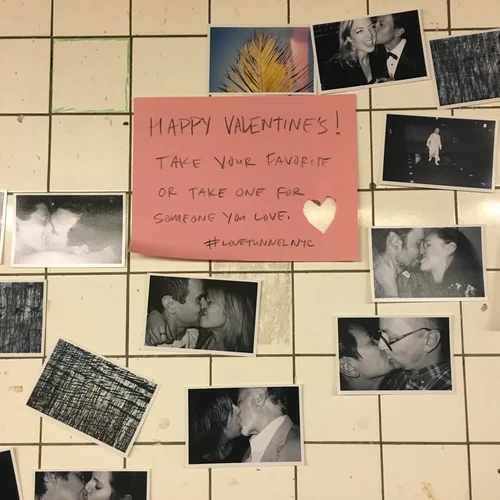 HAPPY VALENTINE'S!
TAKE YOUR FAVORITE
OR TAKE ONE FOR
SOMEONE YOU LOVE.
#LOVETUNNELNYC